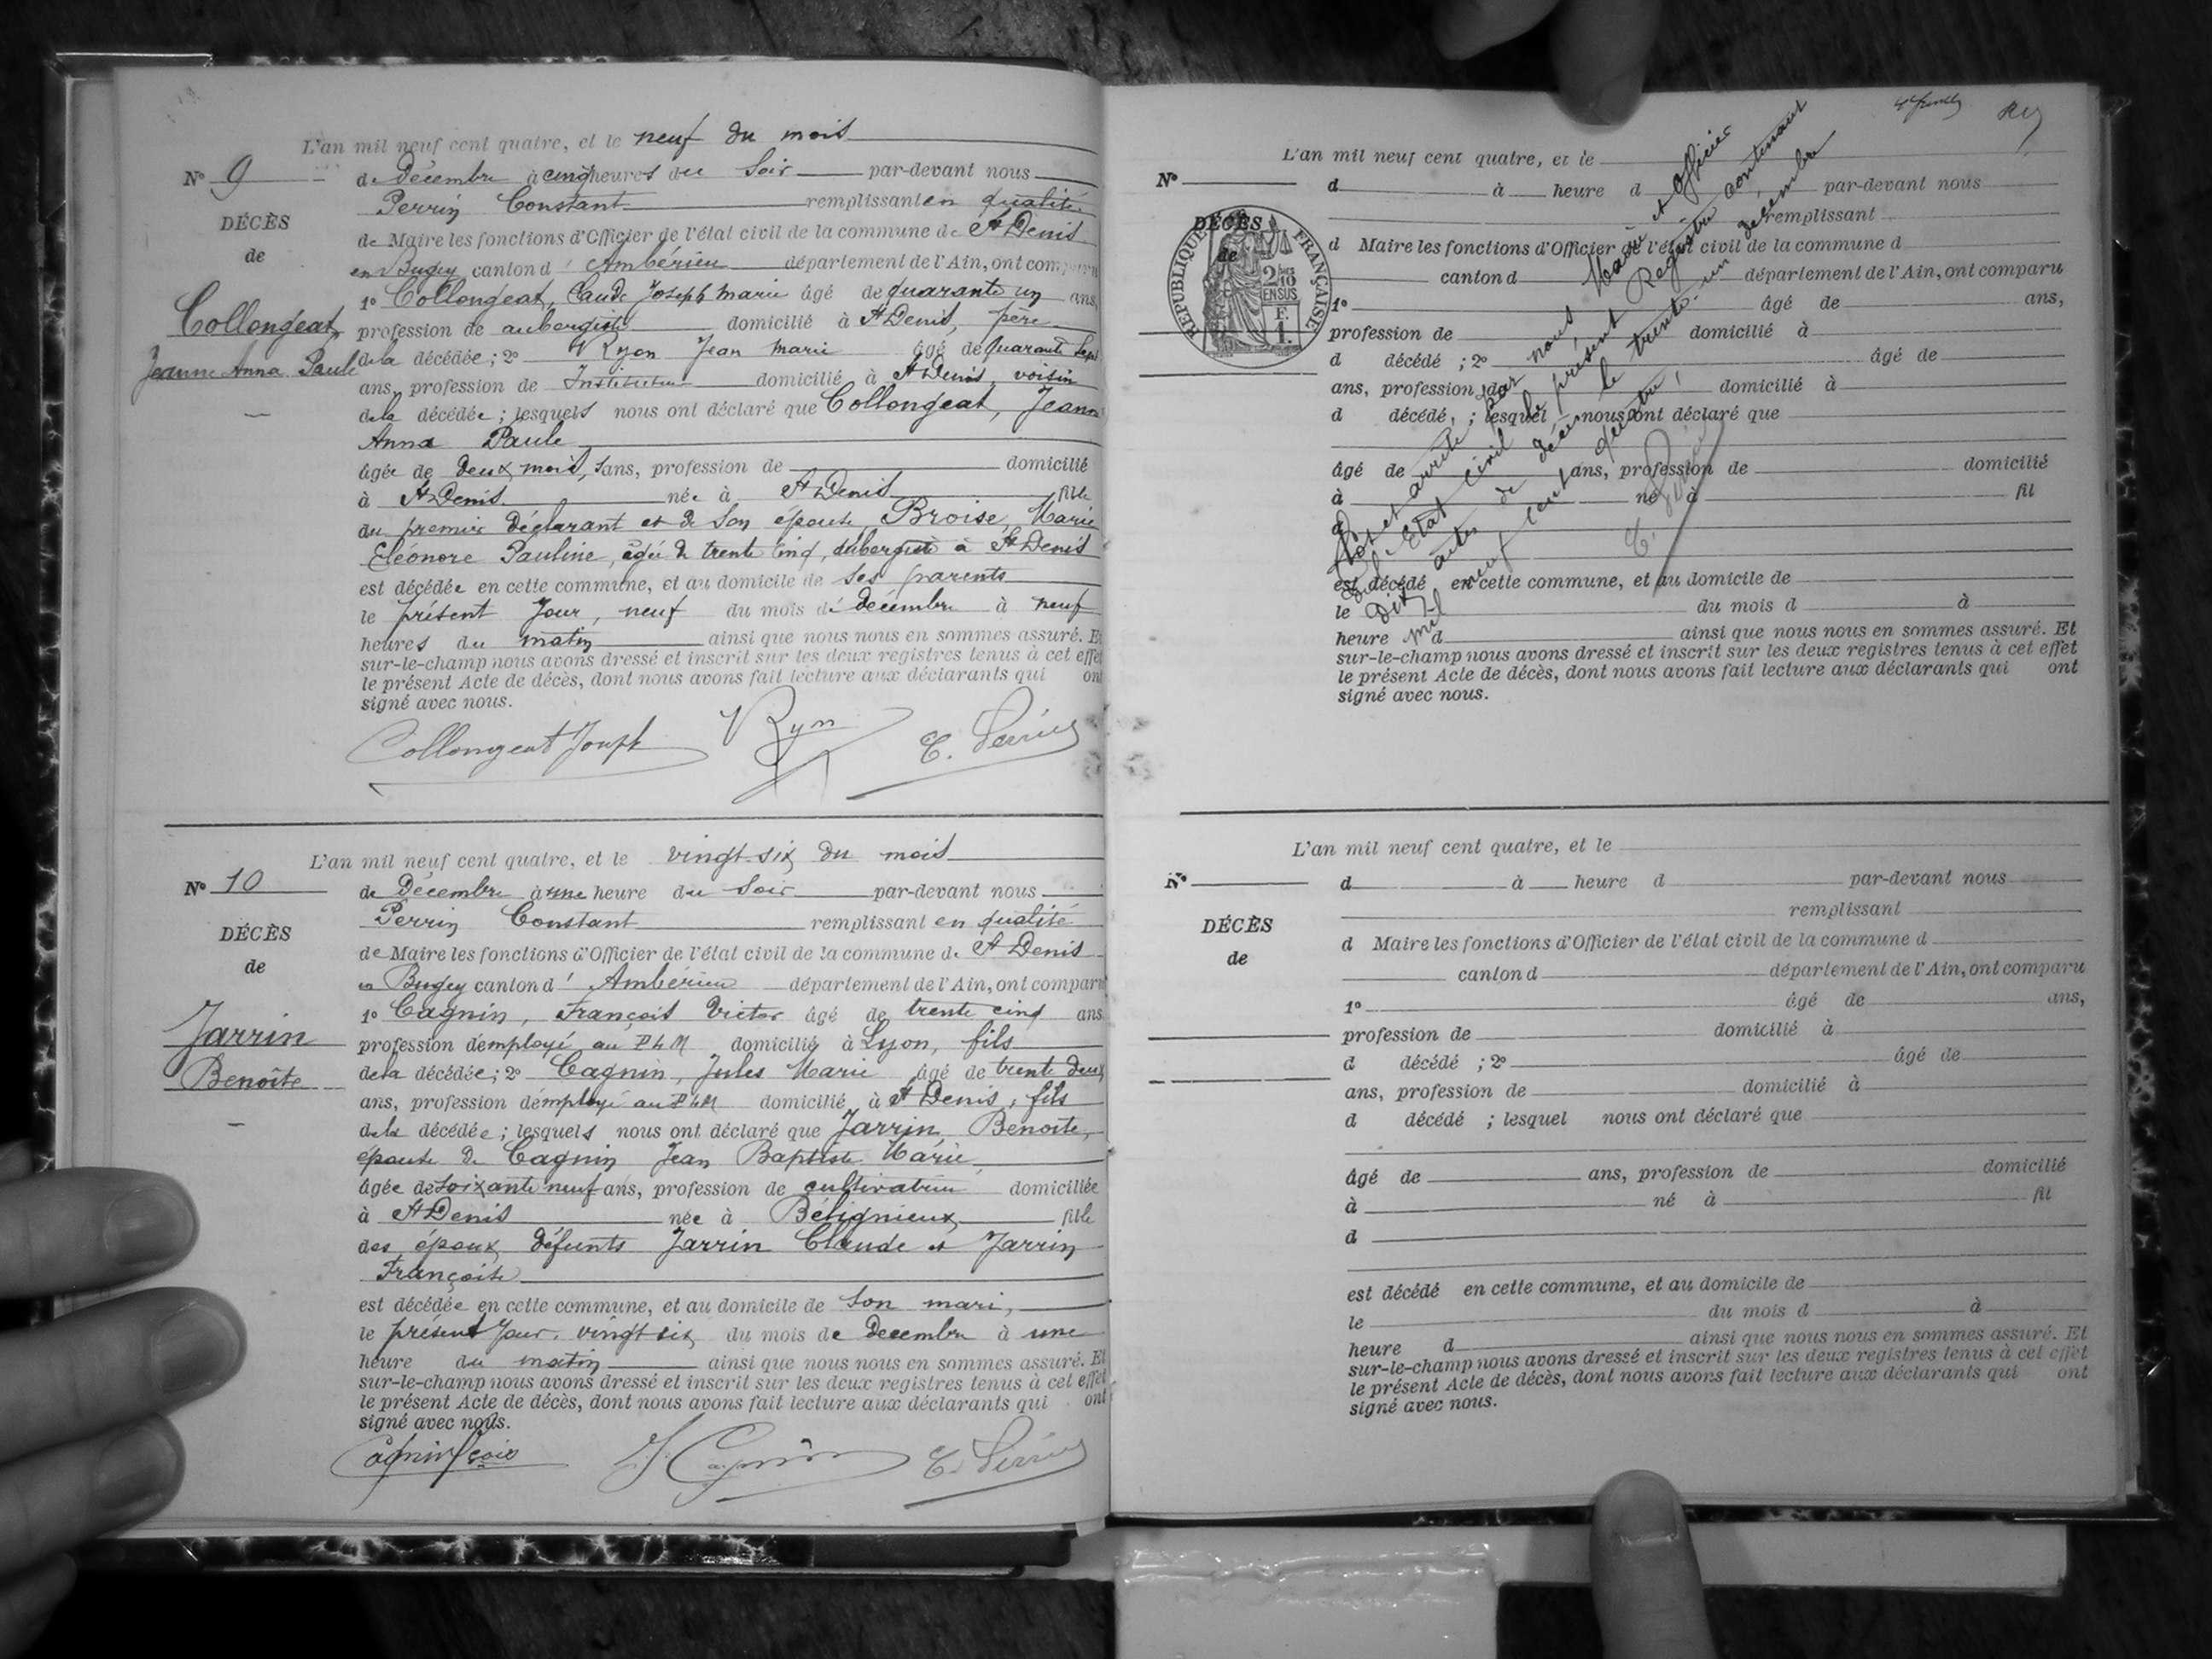 L'an mil neuf cent quatre, et le neuf du mois
N° 9
de Décembre à cinq heures du Soir par-devant nous
Perrin Constant remplissant en qualité
DÉCÈS
de Maire les fonctions d'Officier de l'état civil de la commune de St Denis
de
en Bugey canton d' Ambérieu département de l'Ain, ont comparu
1° Collongeat, Claude Joseph Marie âgé de quarante un ans,
Collongeat,
profession de aubergiste domicilié à St Denis, père
Jeanne Anna Paule
de la décédée ; 2° Ryon Jean Marie âgé de quarante sept
ans, profession de Instituteur domicilié à St Denis, voisin
de la décédée ; lesquels nous ont déclaré que Collongeat, Jeanne
Anna Paule
âgée de deux mois, sans, profession de domicilié
à St Denis née à St Denis fille
du premier déclarant et de son épouse, Broise, Marie
Eléonore Pauline, âgée de trente cinq, aubergiste à St Denis
est décédée en cette commune, et au domicile de ses parents
le présent Jour, neuf du mois de décembre à neuf
heures du matin ainsi que nous nous en sommes assuré. Et
sur-le-champ nous avons dressé et inscrit sur les deux registres tenus à cet effet
le présent Acte de décès, dont nous avons fait lecture aux déclarants qui ont
signé avec nous.
Collongeat Joseph Ryon C. Perrin
L'an mil neuf cent quatre, et le vingt-six du mois
N° 10
de Décembre à une heure du Soir par-devant nous
Perrin Constant remplissant en qualité
DÉCÈS
de Maire les fonctions d'Officier de l'état civil de la commune de St Denis
de
en Bugey canton d' Ambérieu département de l'Ain, ont comparu
1° Cagnin, François Victor âgé de trente cinq ans
Jarrin
profession d'employé au PLM domicilié à Lyon, fils
Benoîte
de la décédée ; 2° Cagnin, Jules Marie âgé de trente deux
ans, profession d'employé au PLM domicilié à St Denis, fils
de la décédée ; lesquels nous ont déclaré que Jarrin, Benoîte,
épouse de Cagnin Jean Baptiste Marie
âgée de soixante neuf ans, profession de cultivatrice domiciliée
à St Denis née à Béligneux, fille
des époux défunts Jarrin Claude et Jarrin
Françoise
est décédée en cette commune, et au domicile de son mari,
le présent Jour, vingt six du mois de décembre à une
heure du matin ainsi que nous nous en sommes assuré. Et
sur-le-champ nous avons dressé et inscrit sur les deux registres tenus à cet effet
le présent Acte de décès, dont nous avons fait lecture aux déclarants qui ont
signé avec nous.
Cagnin fçois J. Cagnin C. Perrin
L'an mil neuf cent quatre, et le
N° d à heure d par-devant nous
remplissant
DÉCÈS
de
d Maire les fonctions d'Officier de l'état civil de la commune d
canton d département de l'Ain, ont comparu
RÉPUBLIQUE FRANÇAISE
2/10 EN SUS
F. 1.
1° âgé de ans,
profession de domicilié à
d décédé ; 2° âgé de
ans, profession de domicilié à
d décédé, ; lesquel nous ont déclaré que
âgé de ans, profession de domicilié
à né à fil
d
est décédé en cette commune, et au domicile de
le du mois d à
heure d ainsi que nous nous en sommes assuré. Et
sur-le-champ nous avons dressé et inscrit sur les deux registres tenus à cet effet
le présent Acte de décès, dont nous avons fait lecture aux déclarants qui ont
signé avec nous.
Clos et arrêté par nous Maire et Officier
de l'Etat civil le présent Registre contenant
dix actes de décès le trente-un décembre
mil neuf cent quatre,
C. Perrin
L'an mil neuf cent quatre, et le
N° d à heure d par-devant nous
remplissant
DÉCÈS
d Maire les fonctions d'Officier de l'état civil de la commune d
de
canton d département de l'Ain, ont comparu
1° âgé de ans,
profession de domicilié à
d décédé ; 2° âgé de
ans, profession de domicilié à
d décédé ; lesquel nous ont déclaré que
âgé de ans, profession de domicilié
à né à fil
d
est décédé en cette commune, et au domicile de
le du mois d à
heure d ainsi que nous nous en sommes assuré. Et
sur-le-champ nous avons dressé et inscrit sur les deux registres tenus à cet effet
le présent Acte de décès, dont nous avons fait lecture aux déclarants qui ont
signé avec nous.